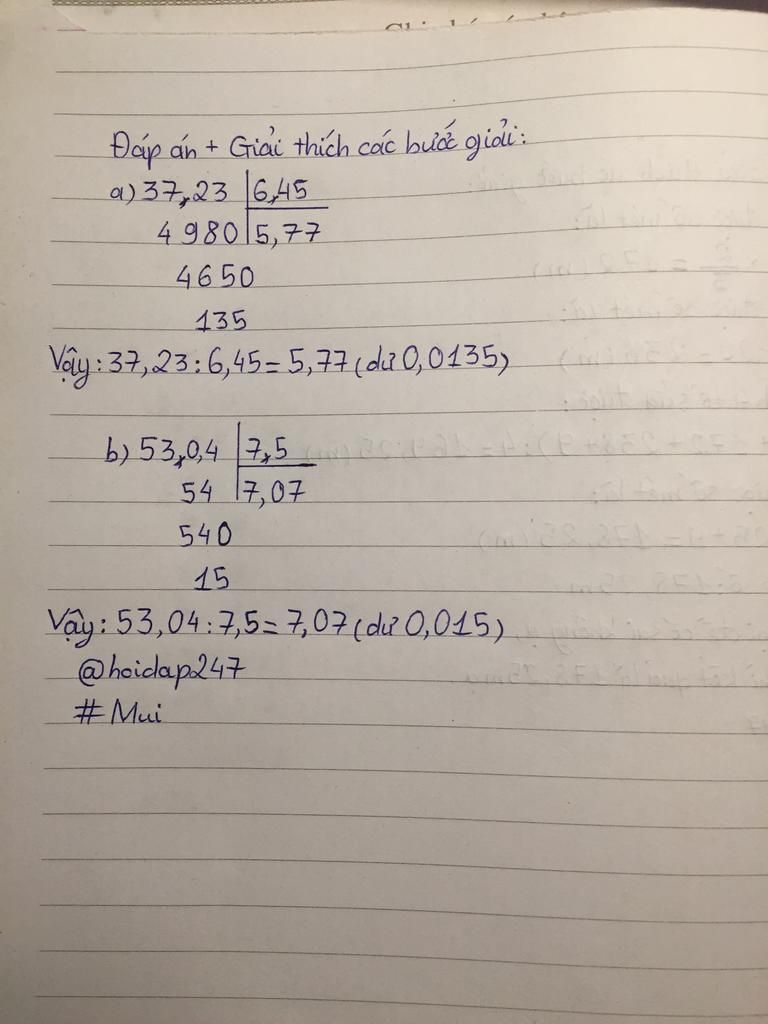 Đáp án + Giải thích các bước giải:
a) 37,23 | 6,45
4980 | 5,77
4650
135
Vậy: 37,23 : 6,45 = 5,77 (dư 0,0135)
b) 53,0,4 | 7,5
54 | 7,07
540
15
Vậy: 53,04 : 7,5 = 7,07 (dư 0,015)
@hoidap247
# Mui